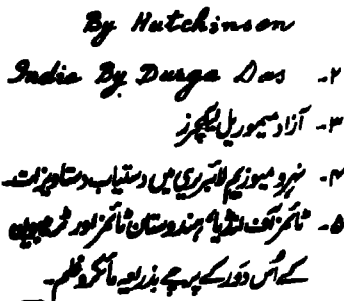 By Hutchinson
India By Durga Das ۲۔
۳۔ آزاد میموریل لیکچرز
۴۔ نہرو میوزیم لائبریری میں دستیاب دستاویزات۔
۵۔ ٹائمز آف انڈیا، ہندوستان ٹائمز اور ٹریبیون
کے اُس دَور کے پرچے بذریعہ مائکرو فلم۔